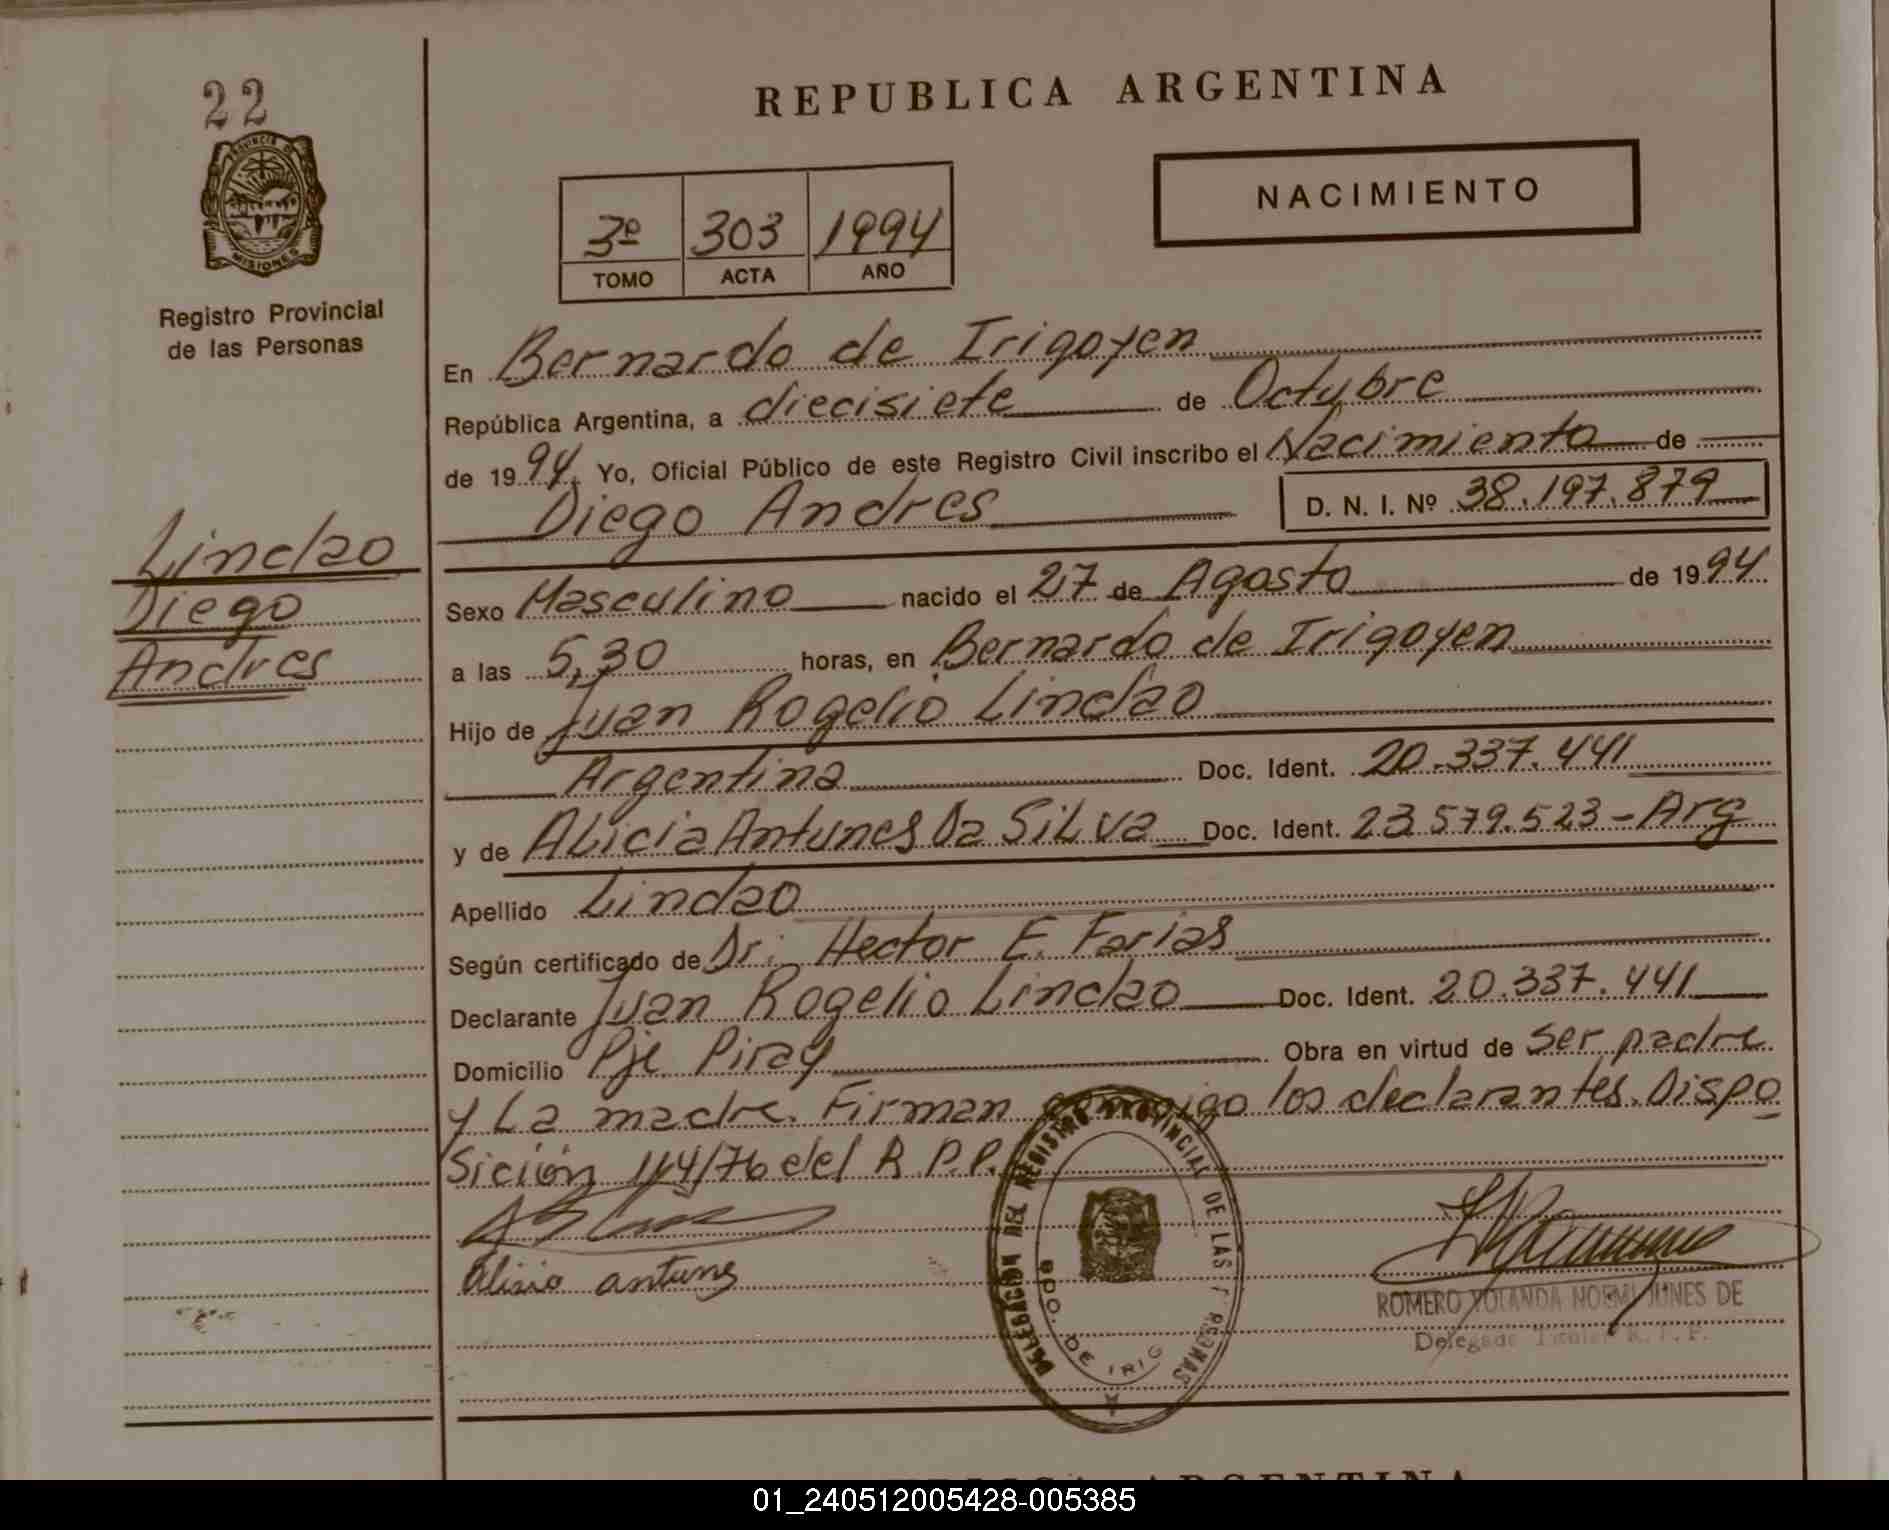 22
PROVINCIA DE
MISIONES
Registro Provincial
de las Personas
Lindao
Diego
Andres
REPUBLICA ARGENTINA
NACIMIENTO
3º 303 1994
TOMO ACTA AÑO
En Bernardo de Irigoyen
República Argentina, a diecisiete de Octubre
de 1994. Yo, Oficial Público de este Registro Civil inscribo el Nacimiento de
Diego Andres D. N. I. Nº 38.197.879
Sexo Masculino nacido el 27 de Agosto de 1994
a las 5,30 horas, en Bernardo de Irigoyen
Hijo de Juan Rogelio Lindao
Argentina Doc. Ident. 20.337.441
y de Alicia Antunes Da Silva Doc. Ident. 23.579.523-Arg
Apellido Lindao
Según certificado de Dr: Hector E. Farias
Declarante Juan Rogelio Lindao Doc. Ident. 20.337.441
Domicilio Pje Piray Obra en virtud de ser padre
y La madre. Firman conmigo los declarantes. Dispo
sición 114/76 del R.P.P.
antunes
DELEGACION DEL REGISTRO PROVINCIAL DE LAS PERSONAS
BDO. DE IRIG
ROMERO YOLANDA NOEMI JUNES DE
Delegada Titular R. P. P.
REPUBLICA ARGENTINA
01_240512005428-005385